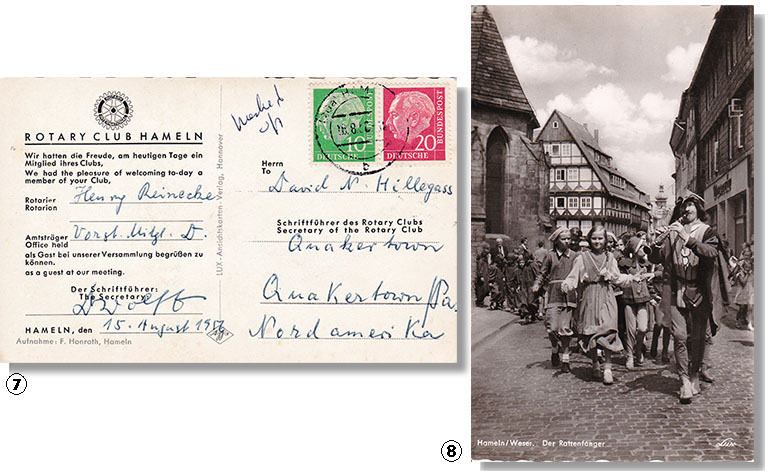 ROTARY CLUB HAMELN
Wir hatten die Freude, am heutigen Tage ein
Mitglied ihres Clubs,
We had the pleasure of welcoming to-day a
member of your Club,
Rotarier
Rotarion
Henry Reinecke
Amtsträger
Office held
Vorst. Mitgl. D.
als Gast bei unserer Versammlung begrüßen zu
können.
as a guest at our meeting.
Der Schriftführer:
The Secretary:
HAMELN, den 15. August 1956
Aufnahme: F. Honrath, Hameln
LUX-Ansichtkarten-Verlag, Hannover
10
DEUTSCHE
BUNDESPOST
20
DEUTSCHE
BUNDESPOST
16.8.
b
Herrn
To
David N. Hillegass
Schriftführer des Rotary Clubs
Secretary of the Rotary Club
Quakertown
Quakertown/Pa.
Nordamerika
7
Hameln/Weser. Der Rattenfänger
Lux
8